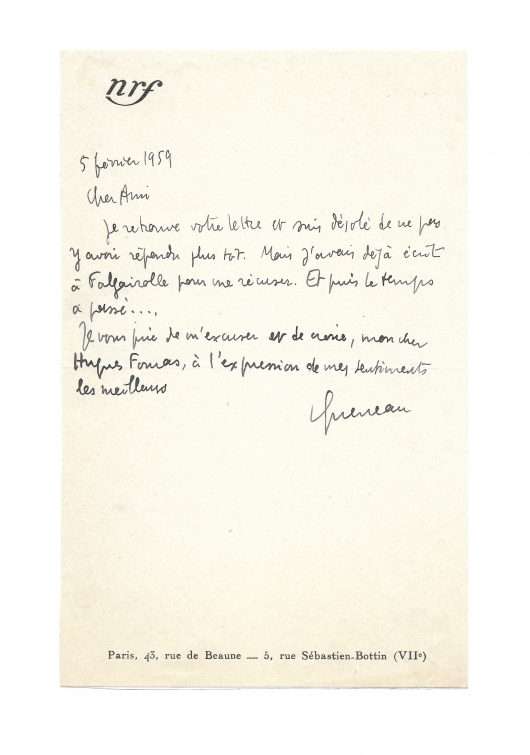 nrf
5 février 1959
Cher Ami
Je retrouve votre lettre et suis désolé de ne pas
y avoir répondu plus tôt. Mais j'avais déjà écrit
à Falgairolle pour me récuser. Et puis le temps
a passé....
Je vous prie de m'excuser et de croire, mon cher
Hugues Fouras, à l'expression de mes sentiments
les meilleurs
Queneau
Paris, 43, rue de Beaune — 5, rue Sébastien-Bottin (VIIe)